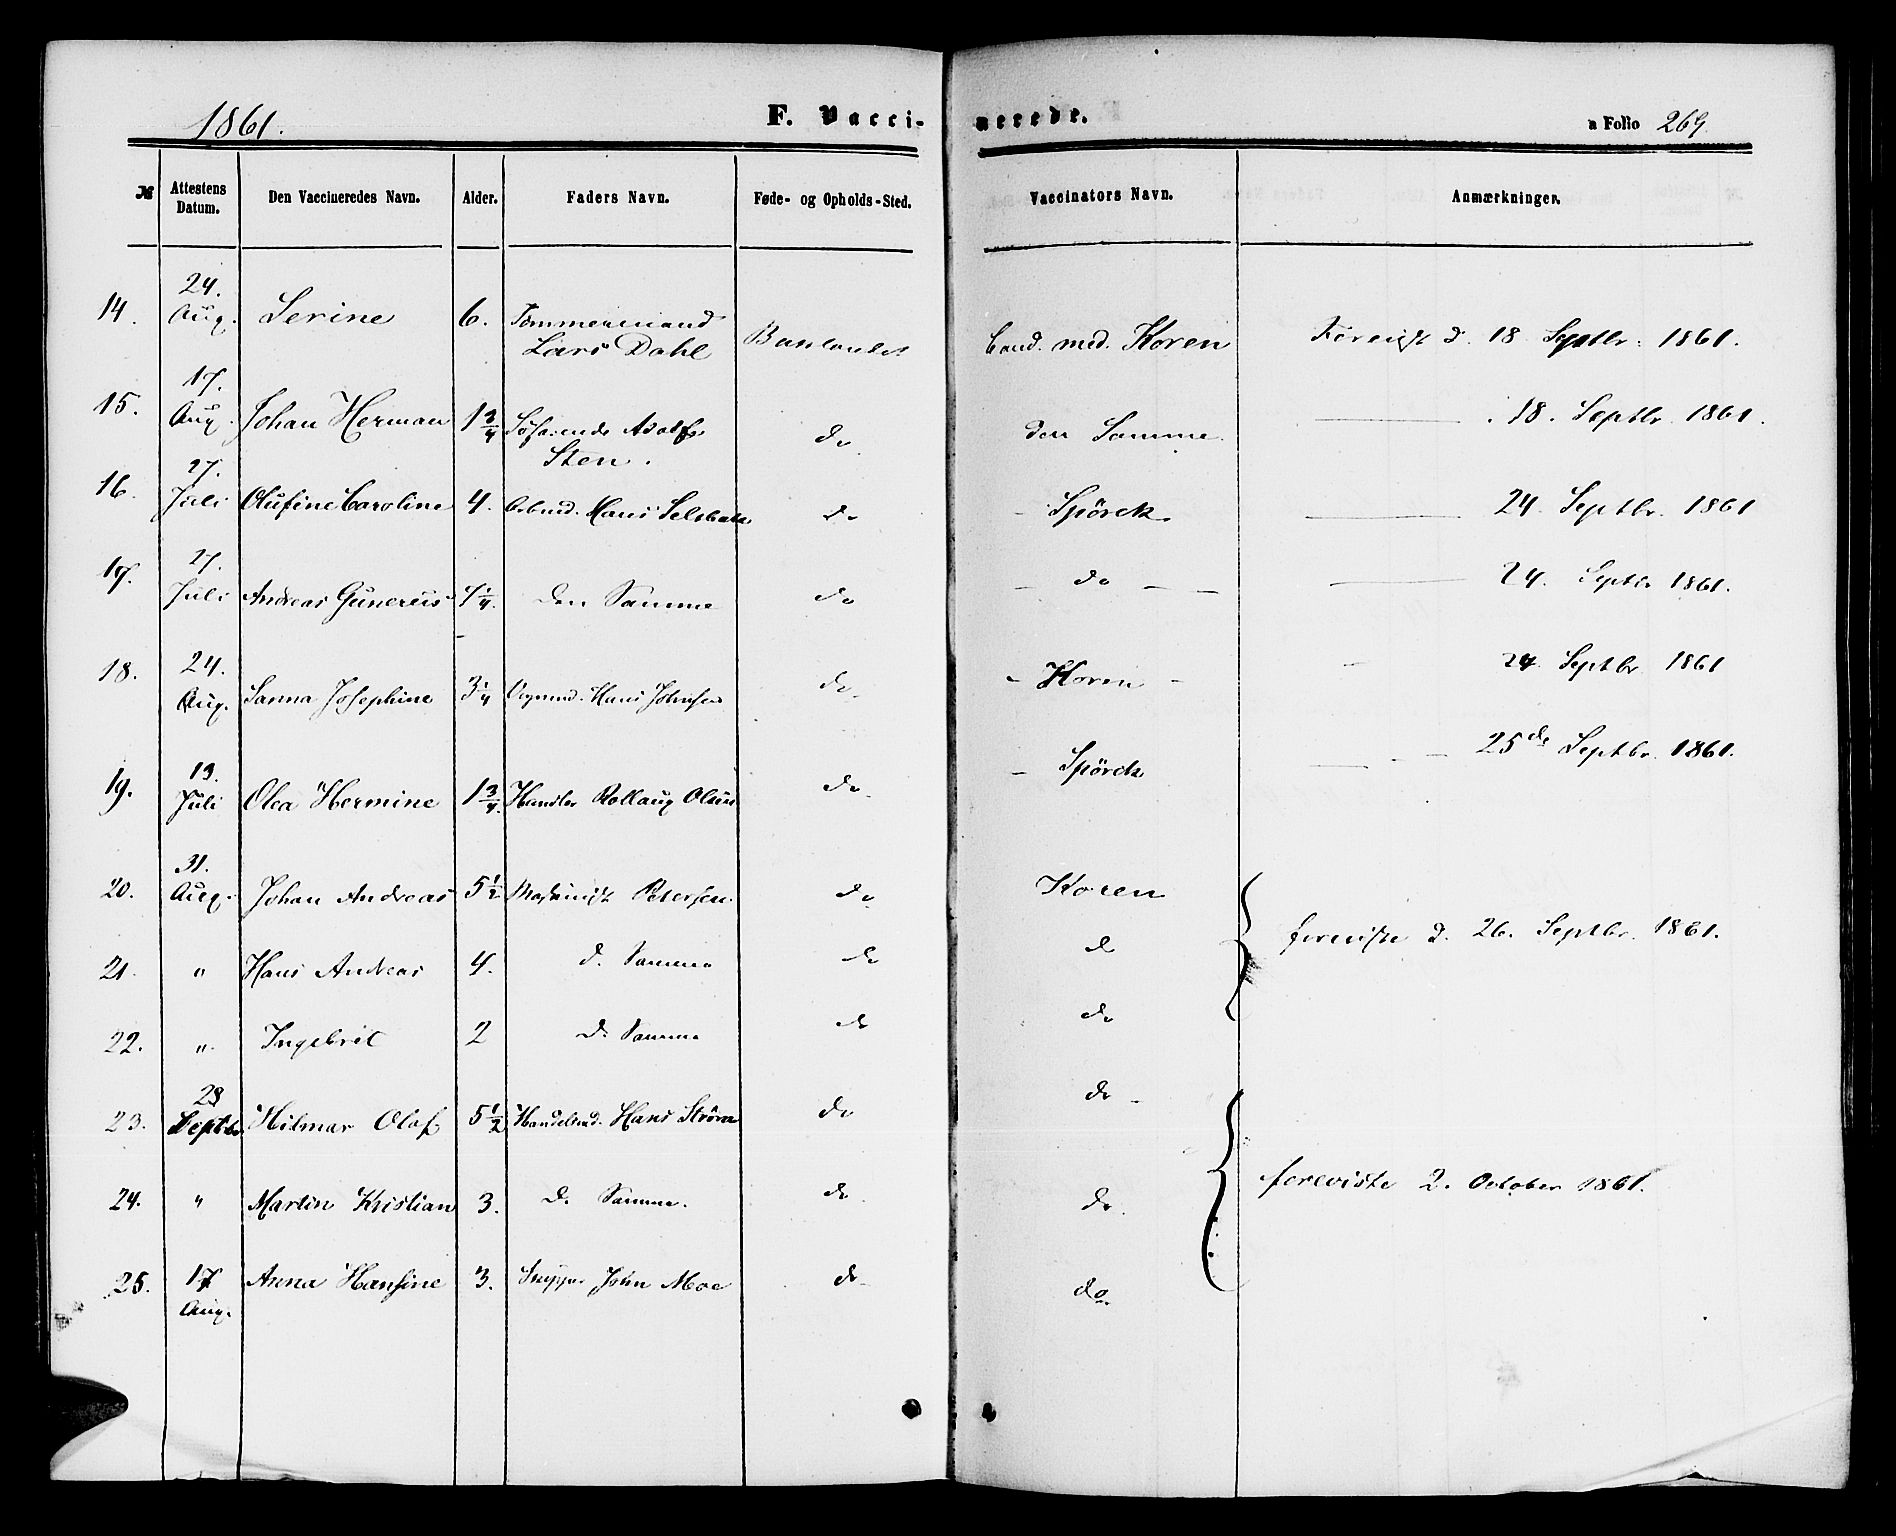 1861.
F. Vaccinerede.
a Folio 269
№ | Attestens Datum. | Den Vaccineredes Navn. | Alder. | Faders Navn. | Føde- og Opholds-Sted. | Vaccinators Navn. | Anmærkninger.
14. | 24. Aug. | Serine | 6. | Tømmermand Lars Dahl | Baklandet | Cand. med. Koren | Forevist d. 18 Septbr. 1861.
15. | 17. Aug. | Johan Herman | 1 3/4 | Adolf Sten. | do | den Samme | 18. Septbr. 1861.
16. | 27. Juli | Olufine Caroline | 4. | Arbmd. Hans | do | Spörck | 24. Septbr. 1861
17. | 27. Juli | Andreas Gunerius | 1/4. | den Samme | do | do | 24. Septbr 1861.
18. | 24. Aug. | Sanna Josephine | 3 1/4 | Hans Johnsen | do | Koren | 24 Septbr 1861
19. | 13. Juli | Olea Hermine | 1 3/4. | Handler Rollaug Olsen | do | Spörck | 25de Septbr. 1861.
20. | 31. Aug. | Johan Andreas | 5 1/2 | Maskinist Petersen | do | Koren | foreviste d. 26. Septbr. 1861.
21. | " | Hans Andreas | 4. | d. Samme | do | do
22. | " | Ingebret | 2 | d. Samme | do | do
23. | 28 Septbr. | Hilmar Olaf | 5 1/2 | Handelsmd. Hans Strøm | do | do | foreviste 2. October 1861.
24. | " | Martin Kristian | 3. | d. Samme. | do | do
25. | 17 Aug. | Anna Hansine | 3. | John Moe | do | do